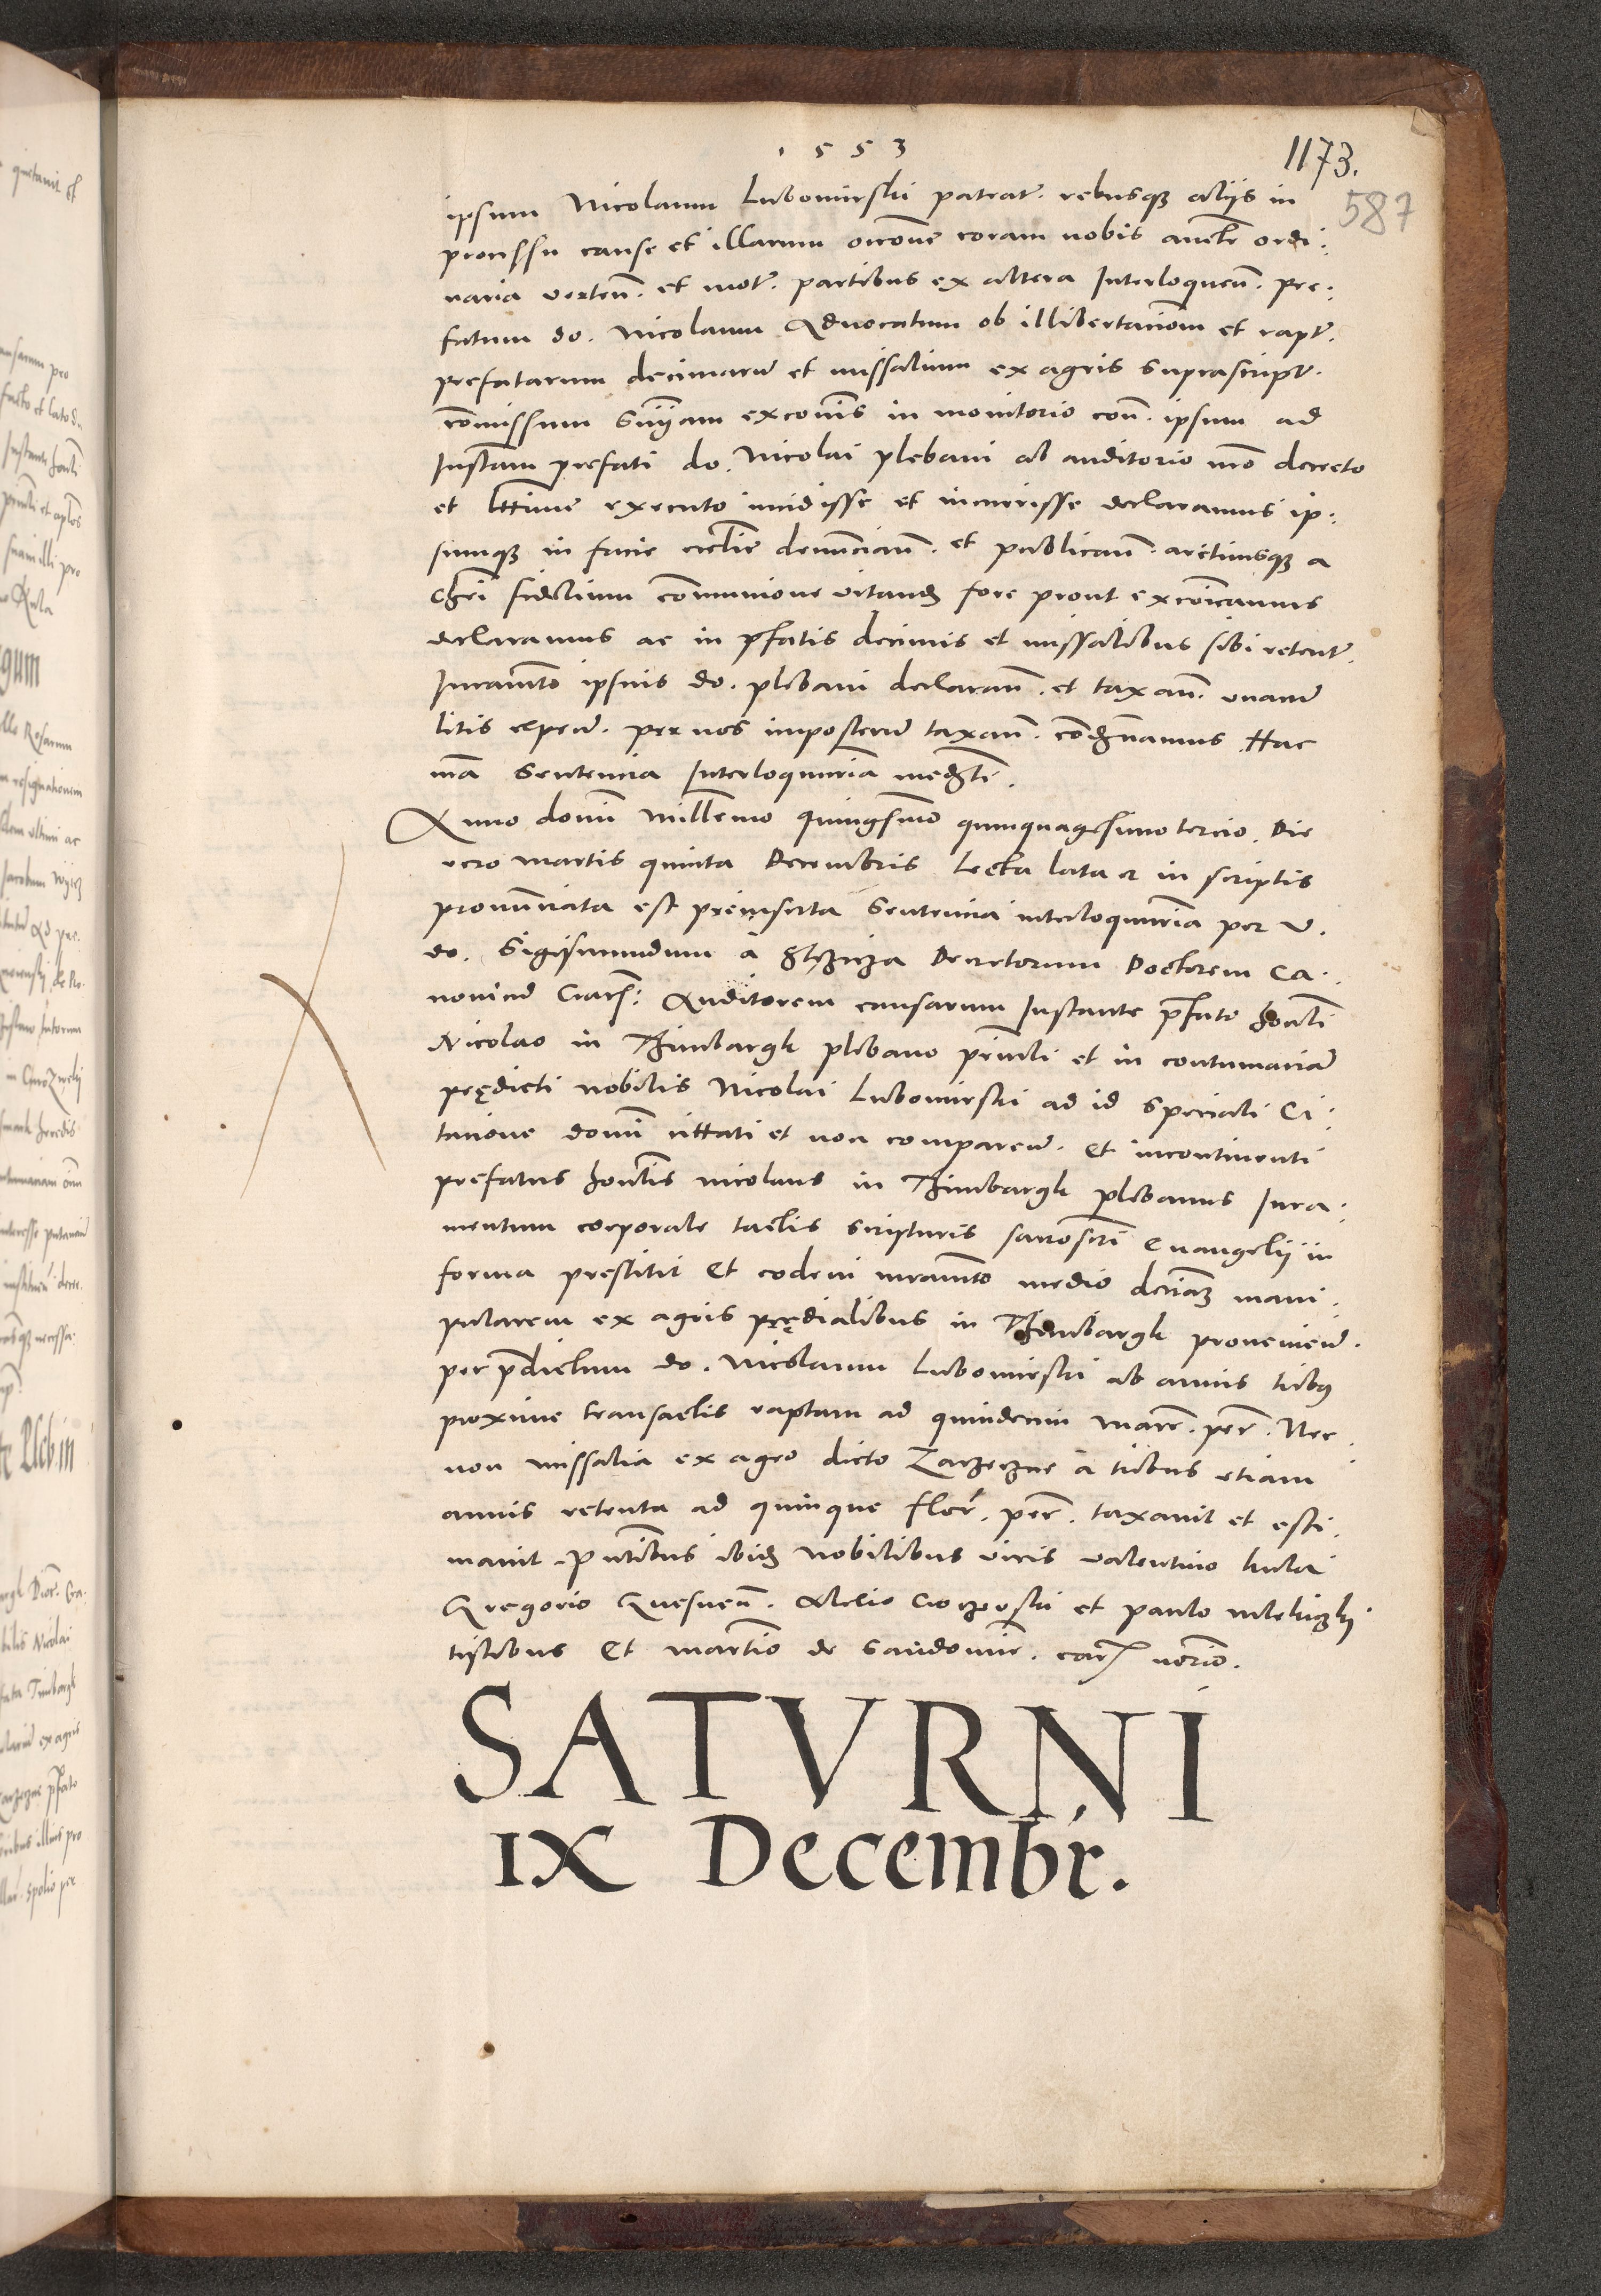 1553
1173.
587
ipsum Nicolaum Lubomirski patrat. rebusq3 aliis in
processu cause et illarum occone coram nobis auctte ordi:
naria verten. et mot. partibus ex altera Interloquen. pre:
fatum do. Nicolaum Advocatum ob illibertaciom et rapt.
prefatarum decimaru et missalium ex agris suprascript.
comissum Snyam excoїnis in monitorio con. ipsum ad
Instam prefati do. Nicolai plebani ab auditorio nro decreto
et lttime executo incidisse et incurrisse declaramus ip:
sumq3 in facie ecclie denuncian. et publican. arctiusq3 a
Chri fidelium communione vitand fore prout excoicamus
declaramus ac in pfatis decimis et missalibus sibi retent.
Iuramto ipsius do. plebani declaran. et taxan. unacu
litis expen. per nos imposteru taxan. condemnamus Hac
nra Sententia Interloqutoria mediante.
Anno domi millemo quingsimo quinquagesimo tercio. Die
vero martis quinta Decembris Lecta lata et in scriptis
pronunciata est preinserta Sententia interloqutoria per V.
do. Sigismundum a Stezicza Decretorum Doctorem Ca:
nonicu Crac: Auditorem causarum Instante pfato honli
Nicolao in Thimbargk plebano pnculi et in contumaciam
predicti nobilis Nicolai Lubomirski ad id speciali Ci:
tacione domi cittati et non comparen. Et incontinenti
prefatus honlis nicolaus in Thimbargk plebanus Iura:
mentum corporale tactis scripturis sacrosci Evangelij in
forma prestitit Et eodem iuramto medio decima mani:
pularem ex agris predialibus in Thimbargk provenien.
per pdictum do. Nicolaum Lubomirski ab annis tribus
proxime transactis raptam ad quindecim marc. pec. Nec
non missalia ex agro dicto Zarzeczne a tribus etiam
annis retenta ad quinque flor. pec. taxavit et esti:
mavit. Pntibus ibid Nobilibus viris valentino hula
Gregorio Gnesnen. Alexio Croczewski et paulo
testibus Et martino de Sandomir. cora notario.
SATVRNI
IX Decembr.